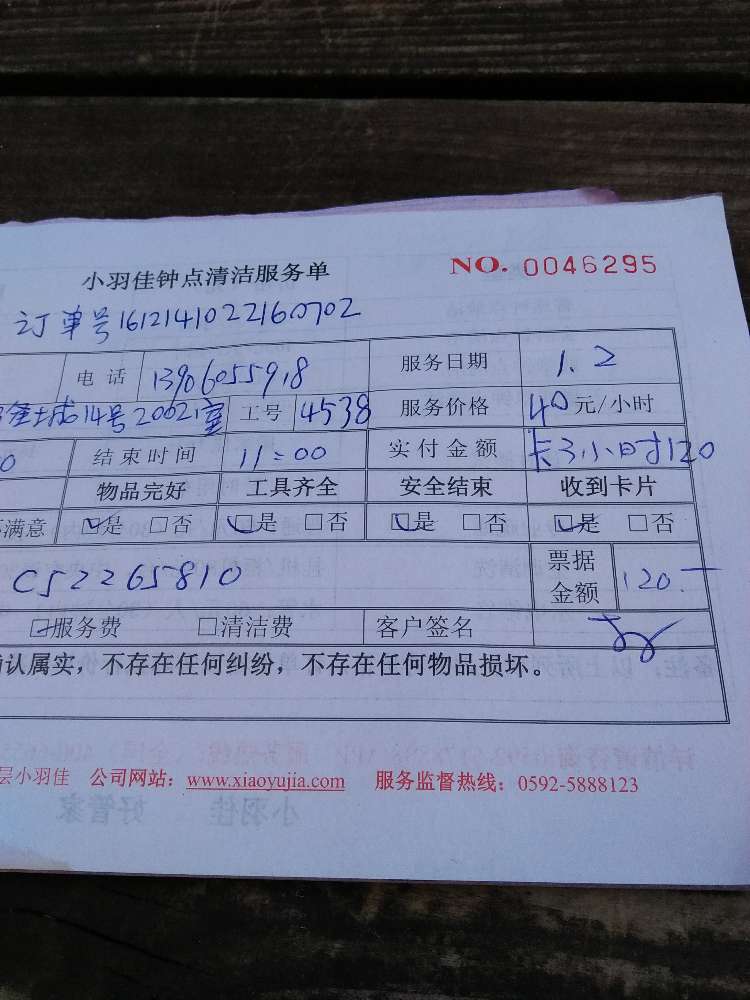 小羽佳钟点清洁服务单 NO. 0046295
订单号1612141022160702
电话 13906055918 服务日期 1.2
14号2002室 工号 4538 服务价格 40元/小时
0 结束时间 11:00 实付金额 卡3小时120
物品完好 工具齐全 安全结束 收到卡片
不满意 ☑是 □否 ☑是 □否 ☑是 □否 ☑是 □否
C52265810 票据金额 120.-
☑服务费 □清洁费 客户签名
认属实，不存在任何纠纷，不存在任何物品损坏。
层小羽佳 公司网站：www.xiaoyujia.com 服务监督热线：0592-5888123
小羽佳 好管家